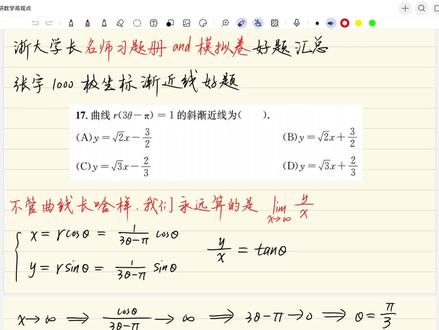 研数学高观点
浙大学长名师习题册 and 模拟卷好题汇总
张宇1000 极坐标渐近线好题
17. 曲线 r(3θ−π) = 1 的斜渐近线为( ).
(A) y = √2x − 3/2 (B) y = √2x + 3/2
(C) y = √3x − 2/3 (D) y = √3x + 2/3
不管曲线长啥样,我们永远算的是 lim x→∞ y/x
x = rcosθ = 1/(3θ−π) cosθ
y = rsinθ = 1/(3θ−π) sinθ
y/x = tanθ
x→∞ ⟹ cosθ/(3θ−π) → ∞ ⟹ 3θ−π→0 ⟹ θ = π/3